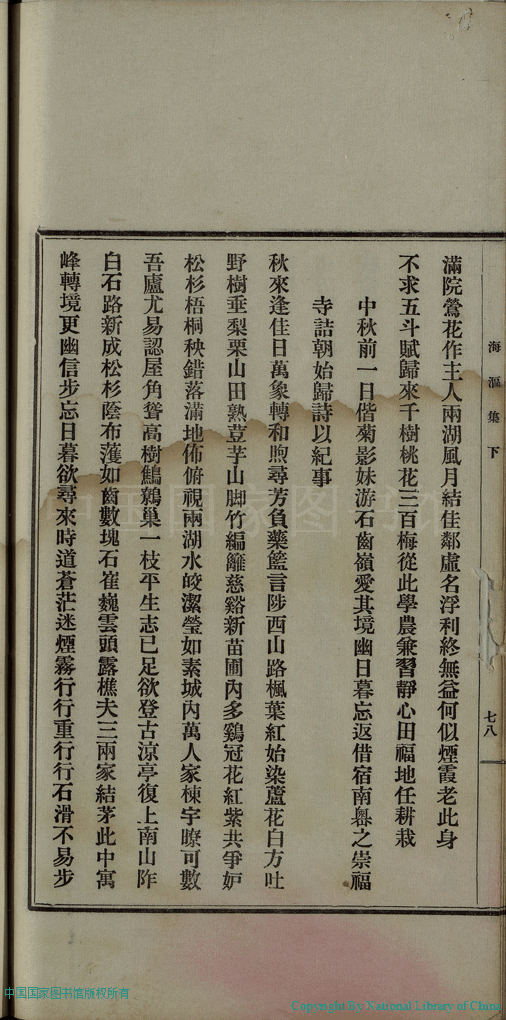 海漚集下
七八
滿院鶯花作主人兩湖風月結佳鄰虛名浮利終無益何似煙霞老此身
不求五斗賦歸來千樹桃花三百梅從此學農兼習靜心田福地任耕栽
中秋前一日偕菊影妹游石齒嶺愛其境幽日暮忘返借宿南嶴之崇福
寺詰朝始歸詩以紀事
秋來逢佳日萬象轉和煦尋芳負藥籃言陟西山路楓葉紅始染蘆花白方吐
野樹垂梨栗山田熟荳芋山脚竹編籬慈谿新苗圃內多鷄冠花紅紫共爭妒
松杉梧桐秧錯落滿地佈俯視兩湖水皎潔瑩如素城內萬人家棟宇瞭可數
吾廬尤易認屋角聳高樹鷦鷯巢一枝平生志已足欲登古涼亭復上南山阼
白石路新成松杉蔭布濩如齒數塊石崔巍雲頭露樵夫三兩家結茅此中寓
峰轉境更幽信步忘日暮欲尋來時道蒼茫迷煙霧行行重行行石滑不易步
中国国家图书馆
中国国家图书馆版权所有
Copyright By National Library of China